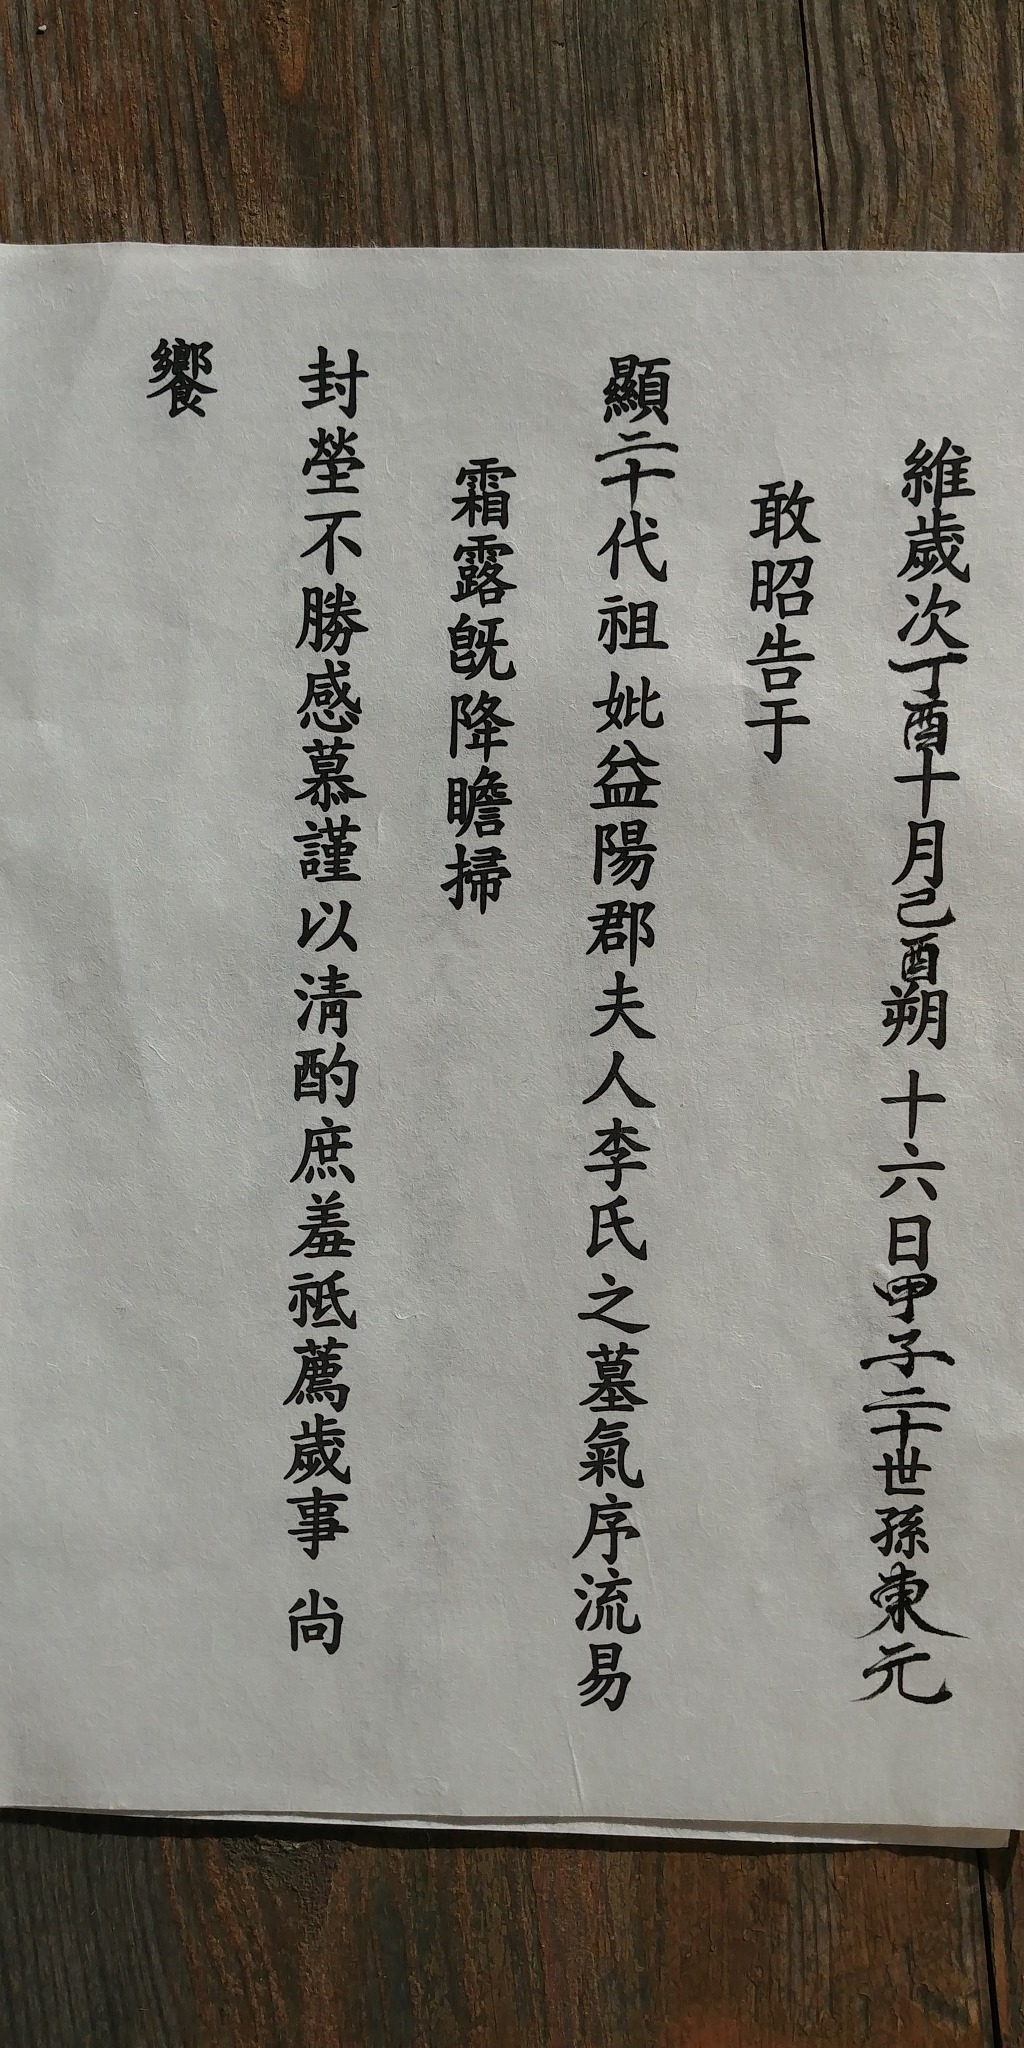 維歲次丁酉十月己酉朔 十六日甲子二十世孫東元
敢昭告于
顯二十代祖妣益陽郡夫人李氏之墓氣序流易
霜露旣降瞻掃
封塋不勝感慕謹以淸酌庶羞祗薦歲事 尙
饗